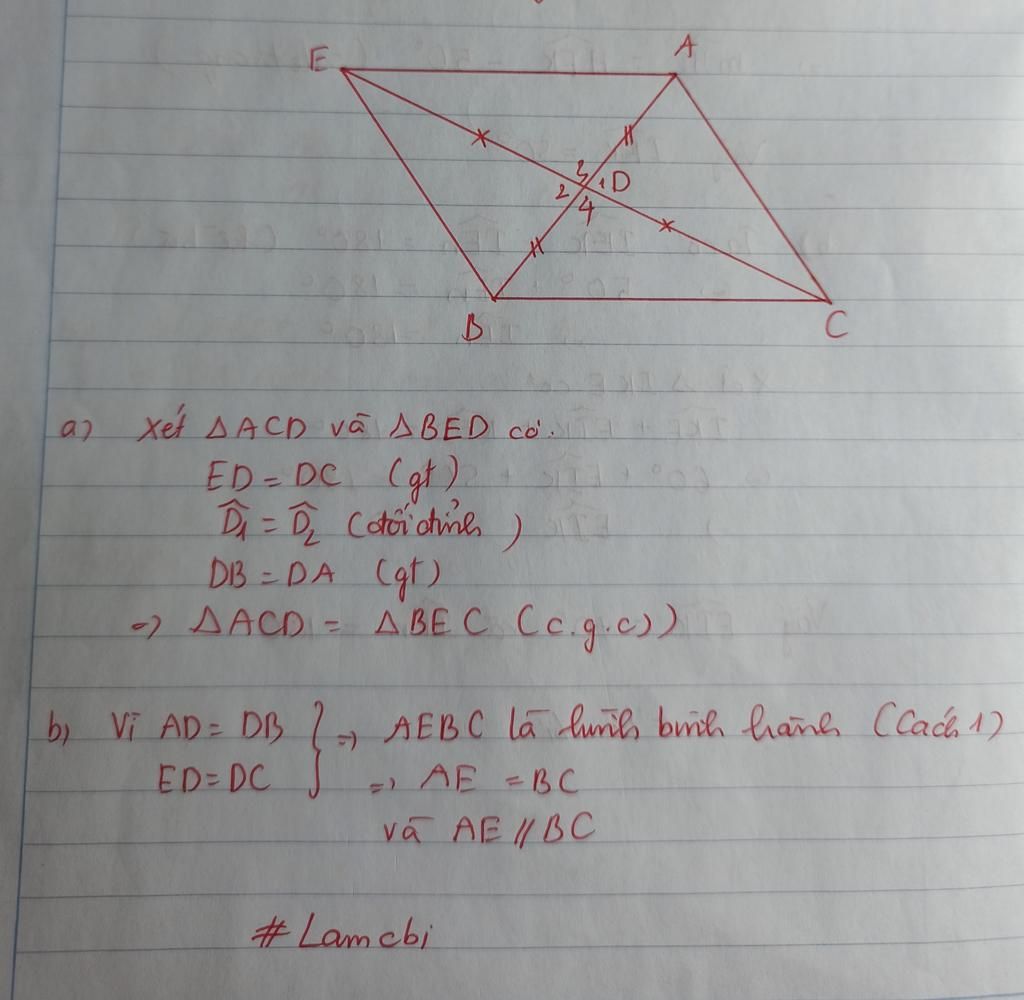 E A
3
2 1 D
4
B C
a) Xét ΔACD và ΔBED có.
ED = DC (gt)
D̂1 = D̂2 (đối đỉnh)
DB = DA (gt)
=> ΔACD = ΔBEC (c.g.c))
b) Vì AD = DB } => AEBC là hình bình hành (Cách 1)
ED = DC => AE = BC
và AE // BC
# Lamcbi